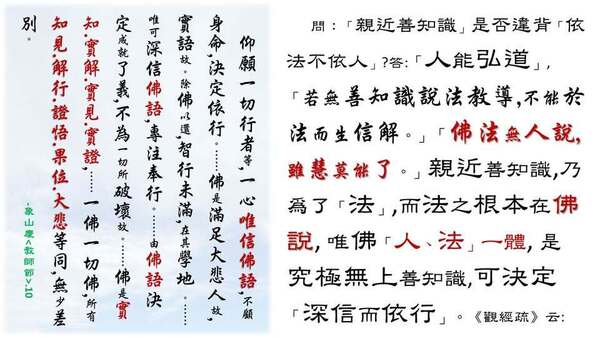 問：「親近善知識」是否違背「依
法不依人」?答:「人能弘道」,
「若無善知識說法教導,不能於
法而生信解。」「佛法無人說,
雖慧莫能了。」親近善知識,乃
爲了「法」,而法之根本在佛
說, 唯佛「人、法」一體, 是
究極無上善知識,可決定
「深信而依行」。《觀經疏》云:
仰願一切行者等,一心唯信佛語,不顧
身命,決定依行。……佛是滿足大悲人故,
實語故。除佛以還,智行未滿,在其學地。……
唯可深信佛語,專注奉行。……由佛語決
定成就了義,不為一切所破壞故。……佛是實
知.實解.實見.實證,……一佛一切佛,所有
知見.解行.證悟.果位.大悲等同,無少差
別。
-象山慶<教師節>10